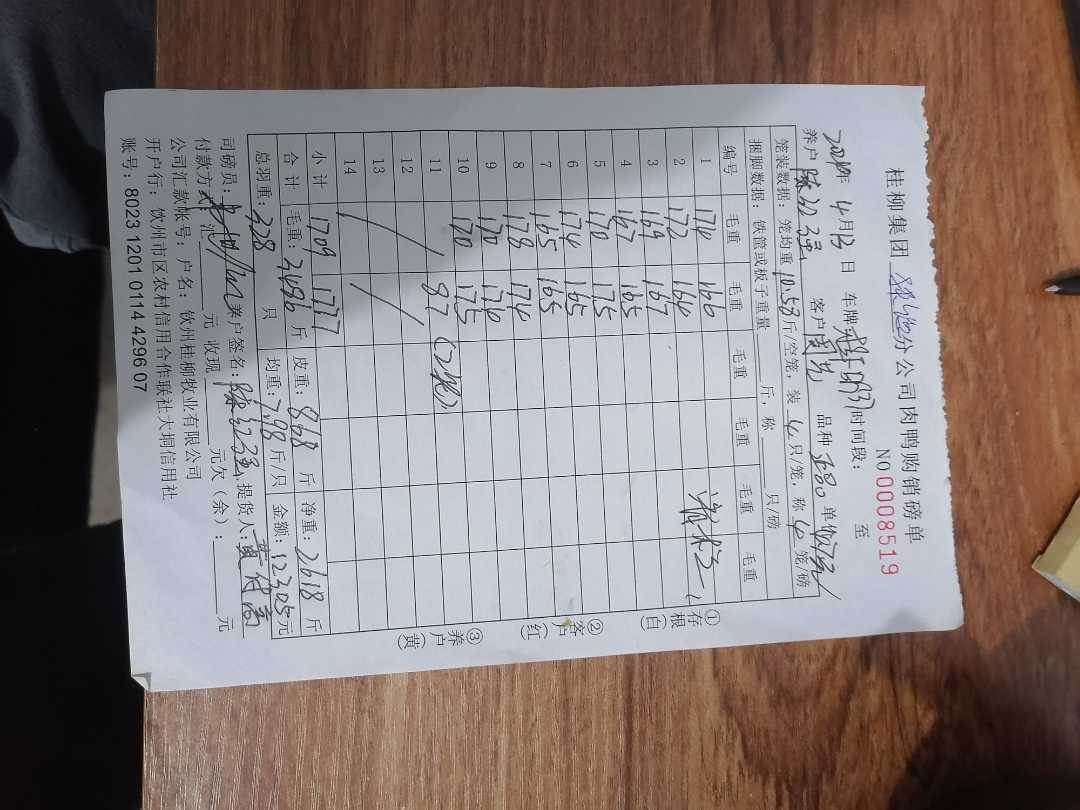 桂柳集团 分公司肉鸭购销磅单
NO 00008519
年 4月 日 车牌 时间段： 至
养户 陈 强 客户 品种 单价
笼装数据：笼均重 10.58 斤/空笼，装 4 只/笼，称 4 笼/磅
捆脚数据：铁管或板子重量 斤，称 只/磅
编号 毛重 毛重 毛重 毛重 毛重 毛重
1 174 166
2 172 164
3 169 167
4 167 165
5 170 175
6 174 165
7 165 165
8 178 174
9 170 174
10 170 175
11 87
12
13
14
小计 1709 1777
合计 毛重：3486 斤 皮重：868 斤 净重：2618 斤
总羽重：328 只 均重：7.98 斤/只 金额：12305 元
司磅员： 养户签名：陈 强 提货人：黄
付款方式：汇 元 收现 元欠（余）： 元
公司汇款帐号：户名：钦州桂柳牧业有限公司
开户行：钦州市区农村信用合作联社大垌信用社
账号：8023 1201 0114 4296 07
①存根（白）
②客户（红）
③养户（黄）